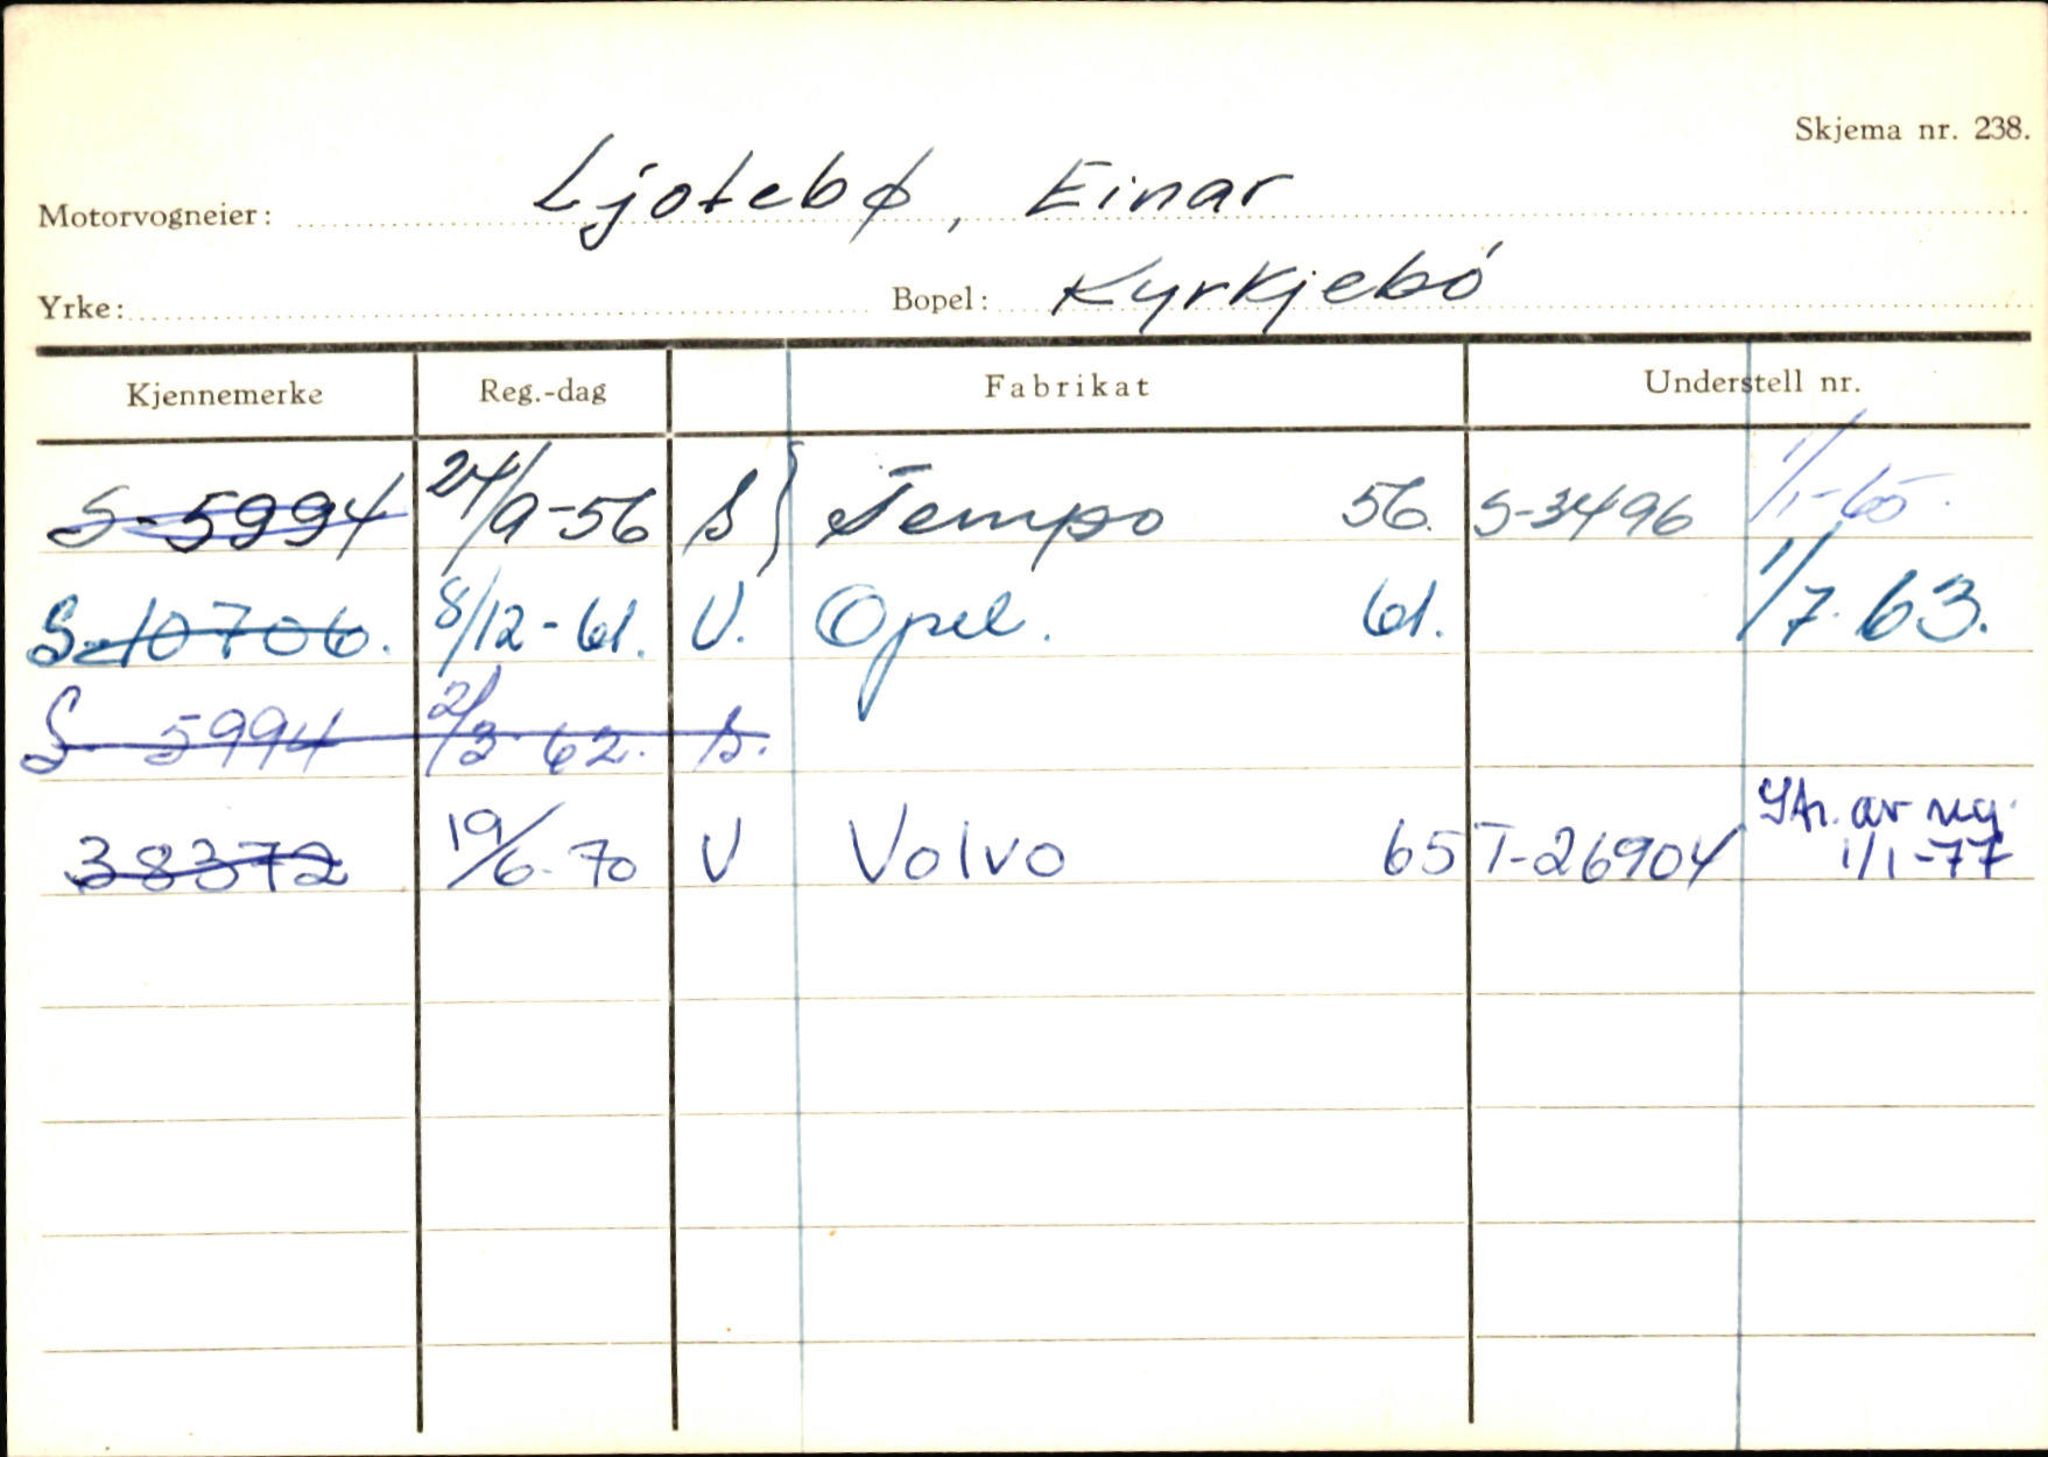 Skjema nr. 238.
Motorvogneier: Ljotebø, Einar
Yrke: Bopel: Kyrkjebø
Kjennemerke Reg.-dag Fabrikat Understell nr.
S-5994 24/9-56 S } Tempo 56. S-3496 1/1-65.
S-10706. 8/12-61. V. Opel. 61. 1/7.63.
S 5994 2/3-62. S.
38372 19/6-70 V Volvo 65 T-26904 Str. av reg. 1/1-77